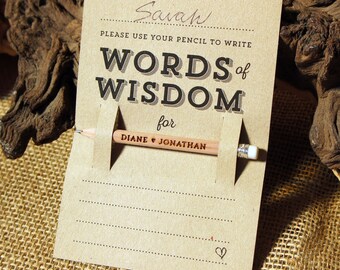 Sarah
PLEASE USE YOUR PENCIL TO WRITE
WORDS of
WISDOM
for
DIANE ♥ JONATHAN